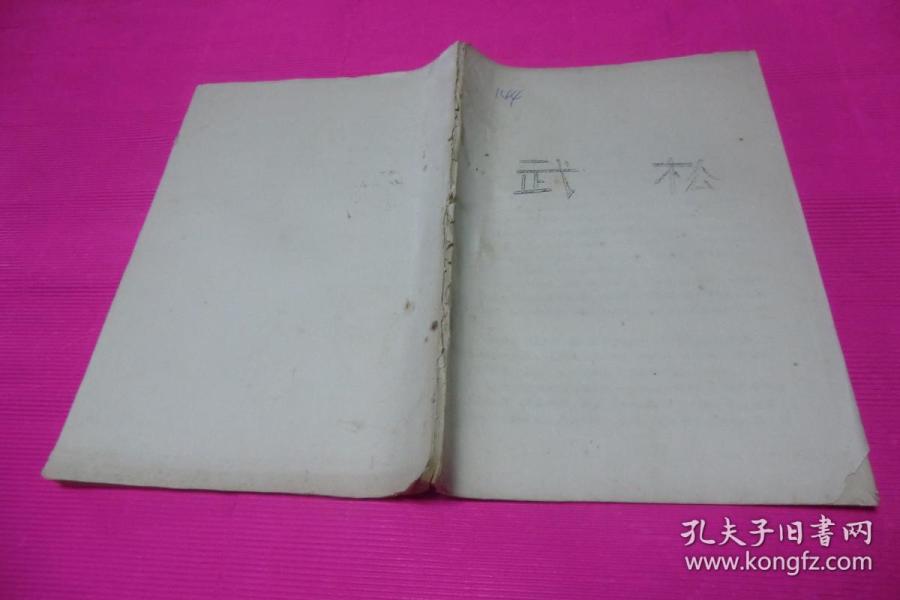 武 松
孔夫子旧書网
www.kongfz.com